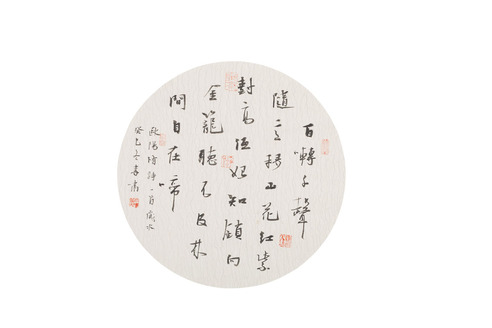 百囀千聲
隨意移山花紅紫
樹高低始知鎖向
金籠聽不及林
間自在啼
歐陽修詩一首
癸巳冬